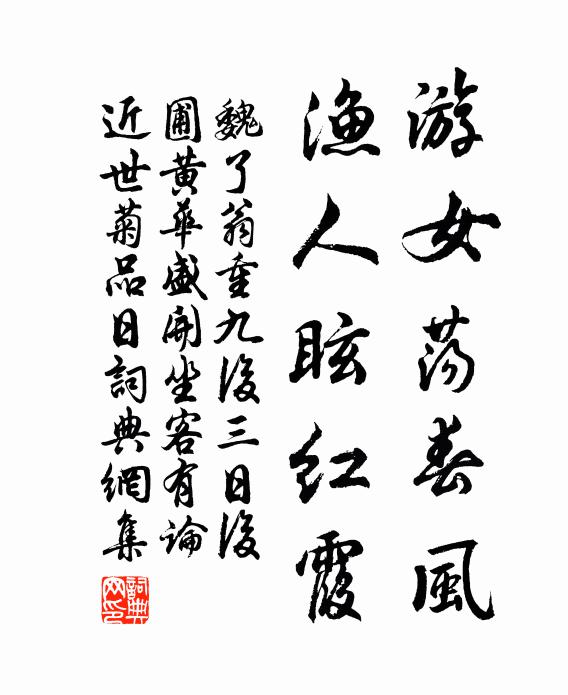 游女荡春風
漁人眩红霞
魏了翁重九後三日後
圃黄華盛開坐客有論
近世菊品日詞典網集
詞典
网印